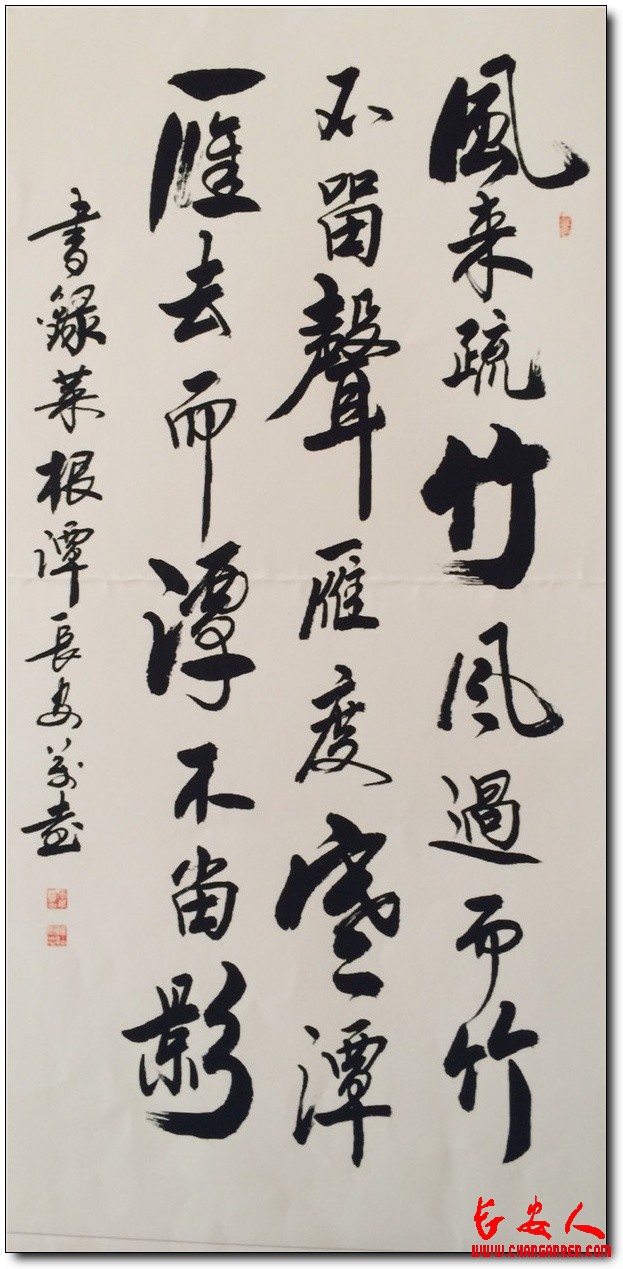 風来疏竹风過而竹
不留聲雁度寒潭
雁去而潭不留影
書錄菜根潭長安
长安人
www.changanren.com